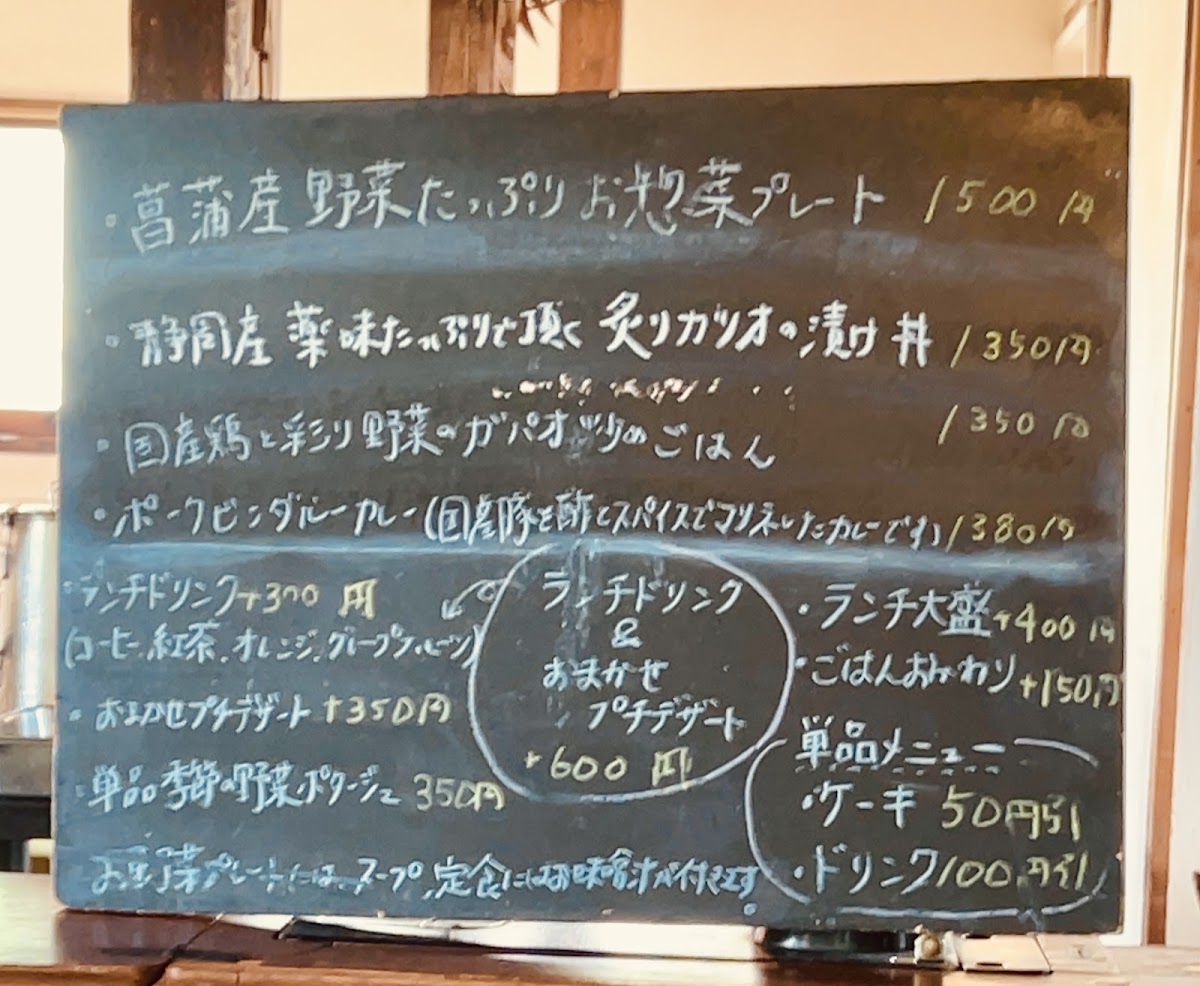 ・菖蒲産野菜たっぷりお惣菜プレート 1500円
・静岡産薬味たっぷりで頂く炙りカツオの漬け丼 1350円
・国産鶏と彩り野菜のガパオ炒めごはん 1350円
・ポークビンダルーカレー(国産豚を酢とスパイスでマリネしたカレーです) 1380円
・ランチドリンク+300円
(コーヒー,紅茶,オレンジ,グレープフルーツ)
・おまかせプチデザート+350円
・単品季節の野菜ポタージュ 350円
お惣菜プレートには、スープ、定食にはお味噌汁が付きます。
ランチドリンク
&
おまかせ
プチデザート
+600円
・ランチ大盛+400円
・ごはんおかわり+150円
単品メニュー
・ケーキ 50円引
・ドリンク100円引